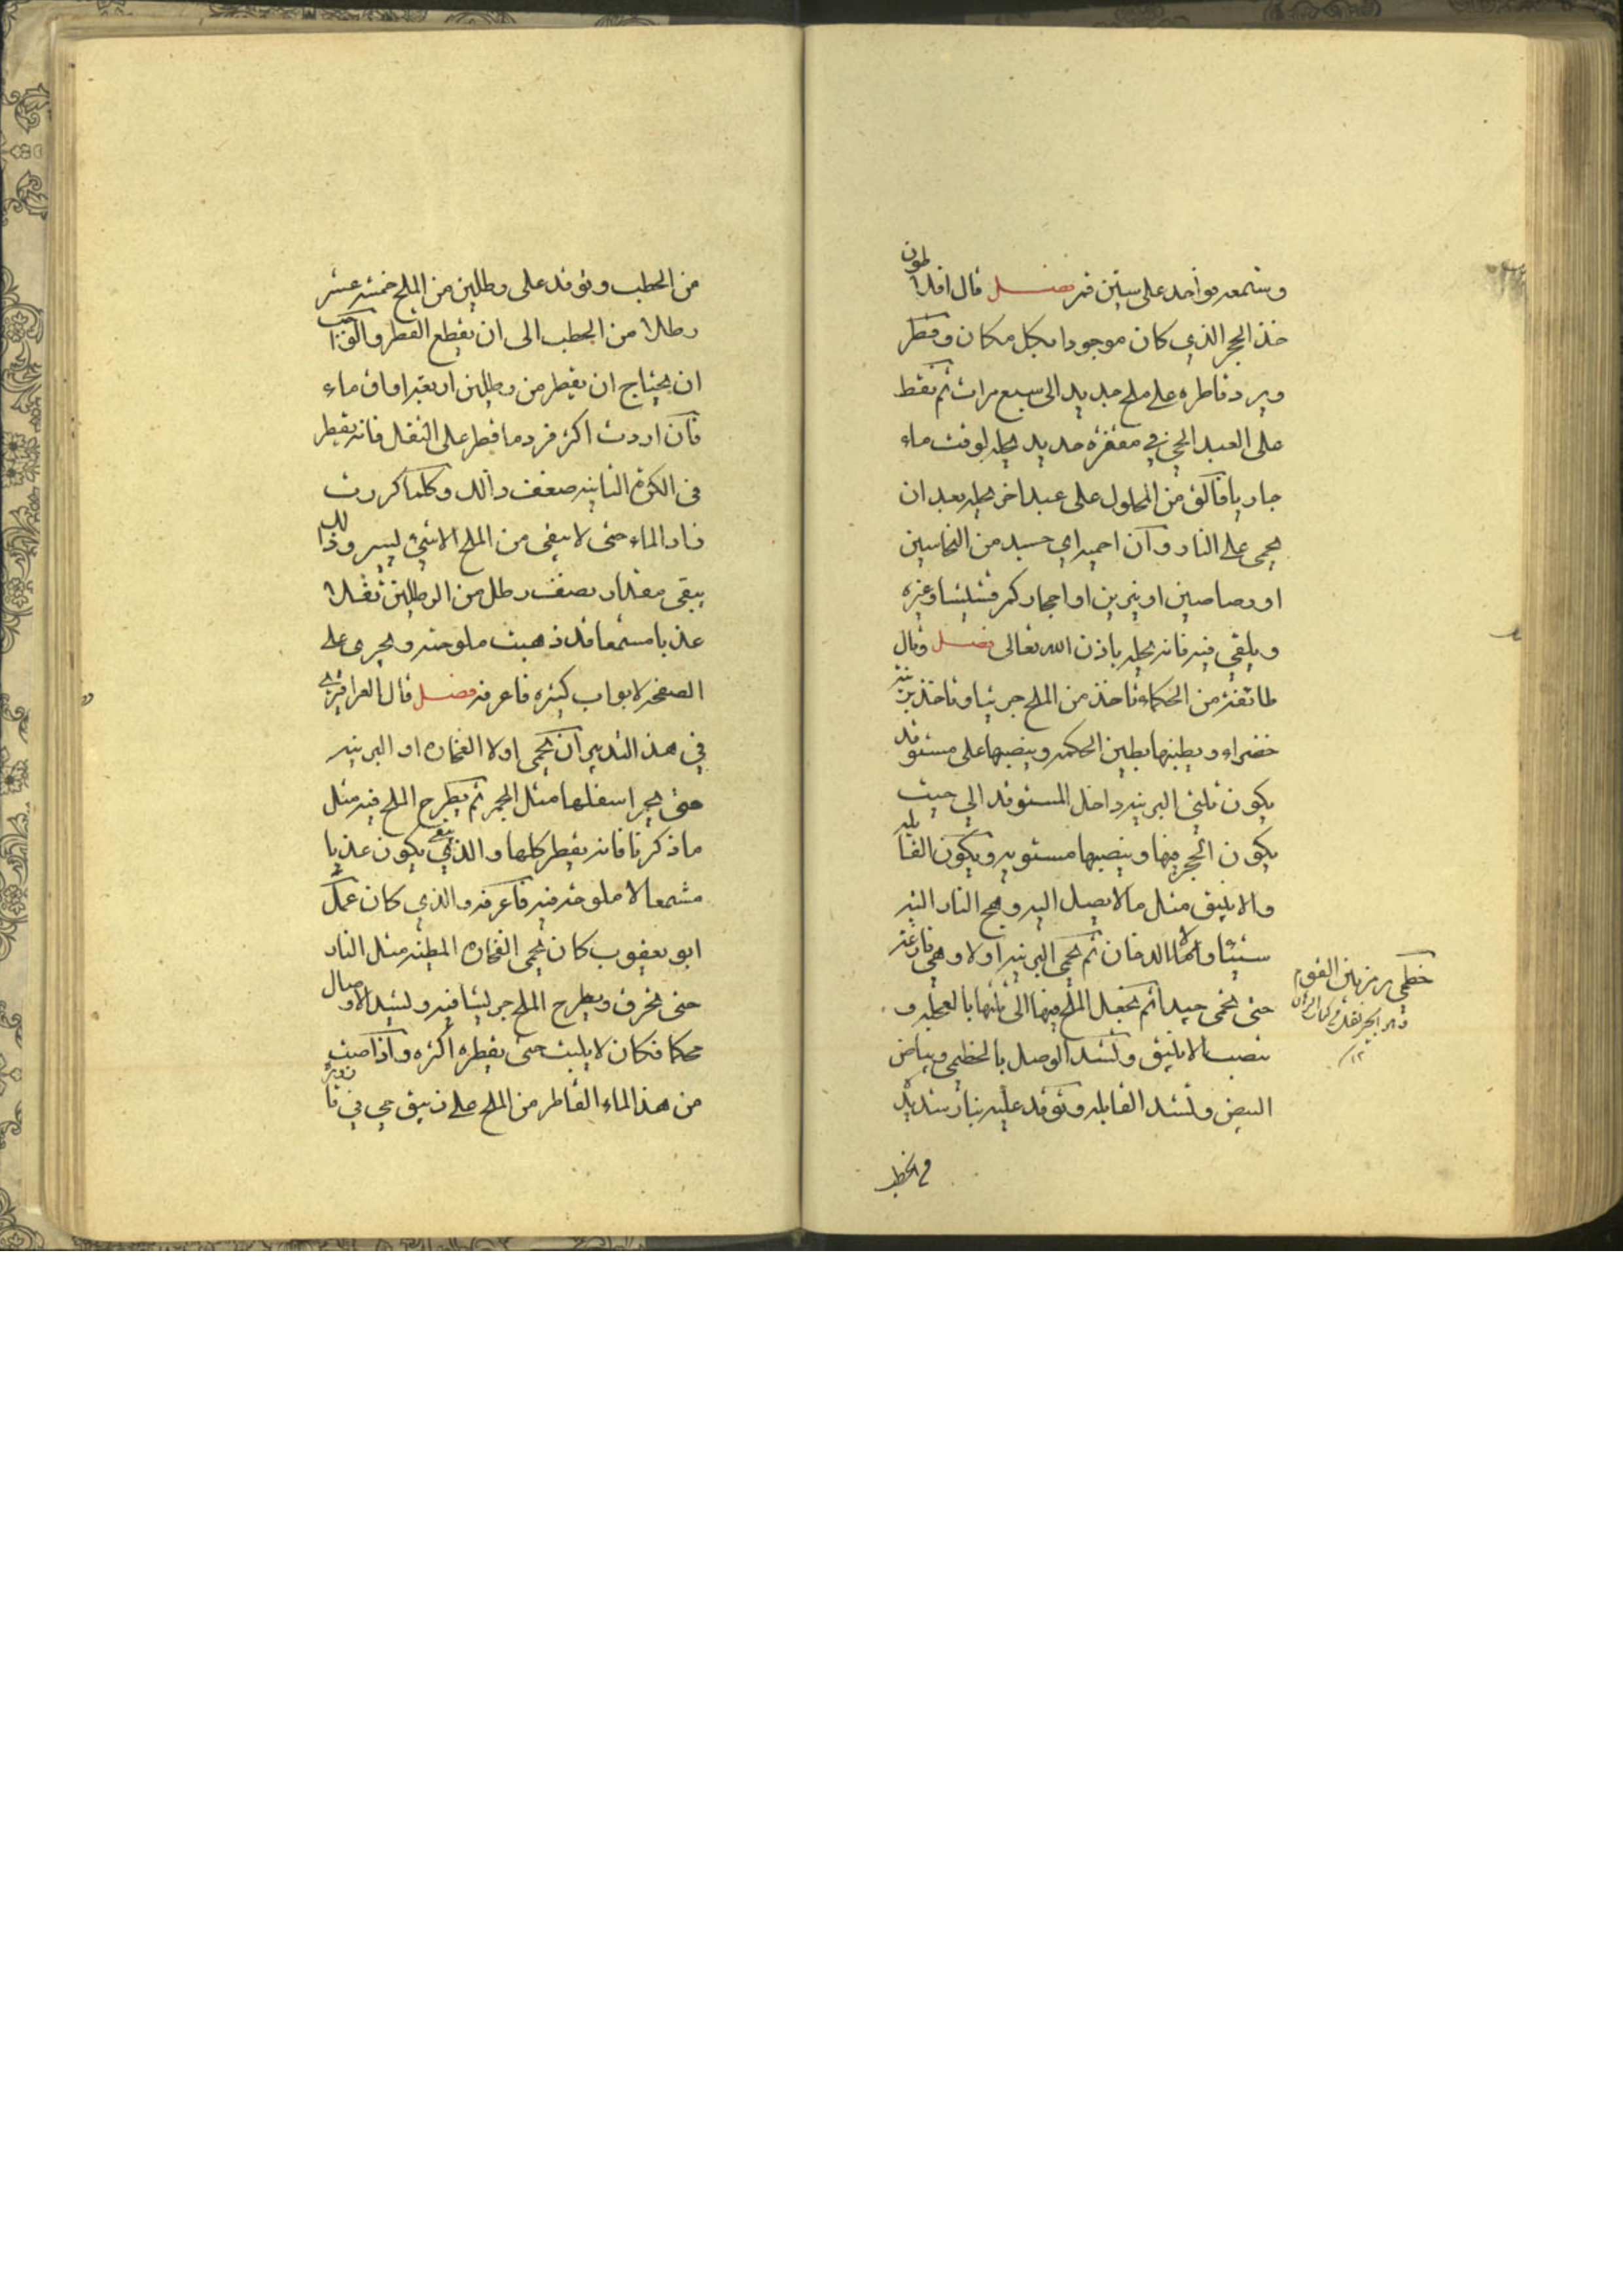 وتشمعه فواحد على ستين قمر فصل قال افلاطون
خذ الحجر الذي كان موجودا بكل مكان وقطر
ويرد قاطره على ملح جديد الى سبع مرات ثم يقطر
على العبد المحمي في مغفرة حديد يحله لوقت ماء
جاريا فالق من المحلول على عبد اخر يحله بعد ان
يحمى على النار وان احمي اي جسد من النحاسين
او رصاصين او نيرين او احجار كمرقشيشا وغيره
ويلقي فيه فانه يحله باذن الله تعالى فصل وقال
طائفة من الحكماء تاخذ من الملح جريشا وتاخذ برنية
خضراء ويطينها بطين الحكمه وينصبها على مستوقد
يكون ثلثي البرنيه داخل المستوقد الى حيث
يكون الحجر فيها وينصبها مستويه ويكون القابله
والانبيق مثل ما لا يصل اليه وهج النار البته
شيئا ولا الدخان ثم يحمى البرنيه اولا وهي فارغه
حتى تحمى جيدا ثم تجعل الملح فيها الى ثلثها بالعجله و
تنصب الانبيق وتشد الوصل بالخطمي وبياض
البيض وتشد القابله وتوقد عليه بنار شديد
من الحطب
خطمي
من الحطب وتوقد على رطلين من الملح خمسة عشر
رطلا من الحطب الى ان يقطع القطر والواجب
ان يحتاج ان يقطر من رطلين اربعة اواق ماء
فان اردت اكثر فرد ما قطر على الثفل فانه يقطر
في الكرة الثانيه ضعف ذالك وكلما كررت
زاد الماء حتى لا يبقى من الملح الا شيئ يسير وذلك
يبقى مقدار نصف رطل من الرطلين ثفلا
عذبا مشمعا قد ذهبت ملوحته ويجري على
الصفحه لابواب كثيره فاعرفه فصل قال العراقي
في هذا التدبير ان يحمى اولا الفخاره او البرنيه
حتى يحمر اسفلها مثل الجمر ثم يطرح الملح فيه مثل
ما ذكرنا فانه يقطر كلها والذي يبقى يكون عذبا
مشمعا لا ملوحة فيه فاعرفه والذي كان عمله
ابو يعقوب كان يحمي الفخاره المطينه مثل النار
حتى تحرق ويطرح الملح جريشا فيه ويشد الاوصال
محكما فكان لا يلبث حتى يقطره اكثره واذا صببت
من هذا الماء القاطر من الملح على زيبق حي في قارورة